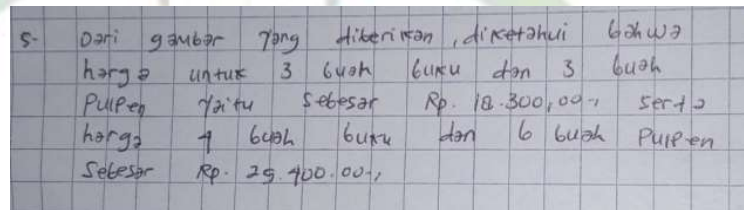 5- Dari gambar yang diberikan, diketahui bahwa
harga untuk 3 buah buku dan 3 buah
Pulpen Yaitu Sebesar Rp. 18.300,00-, serta
harga 4 buah buku dan 6 buah Pulpen
Sebesar Rp. 29.400.00-,